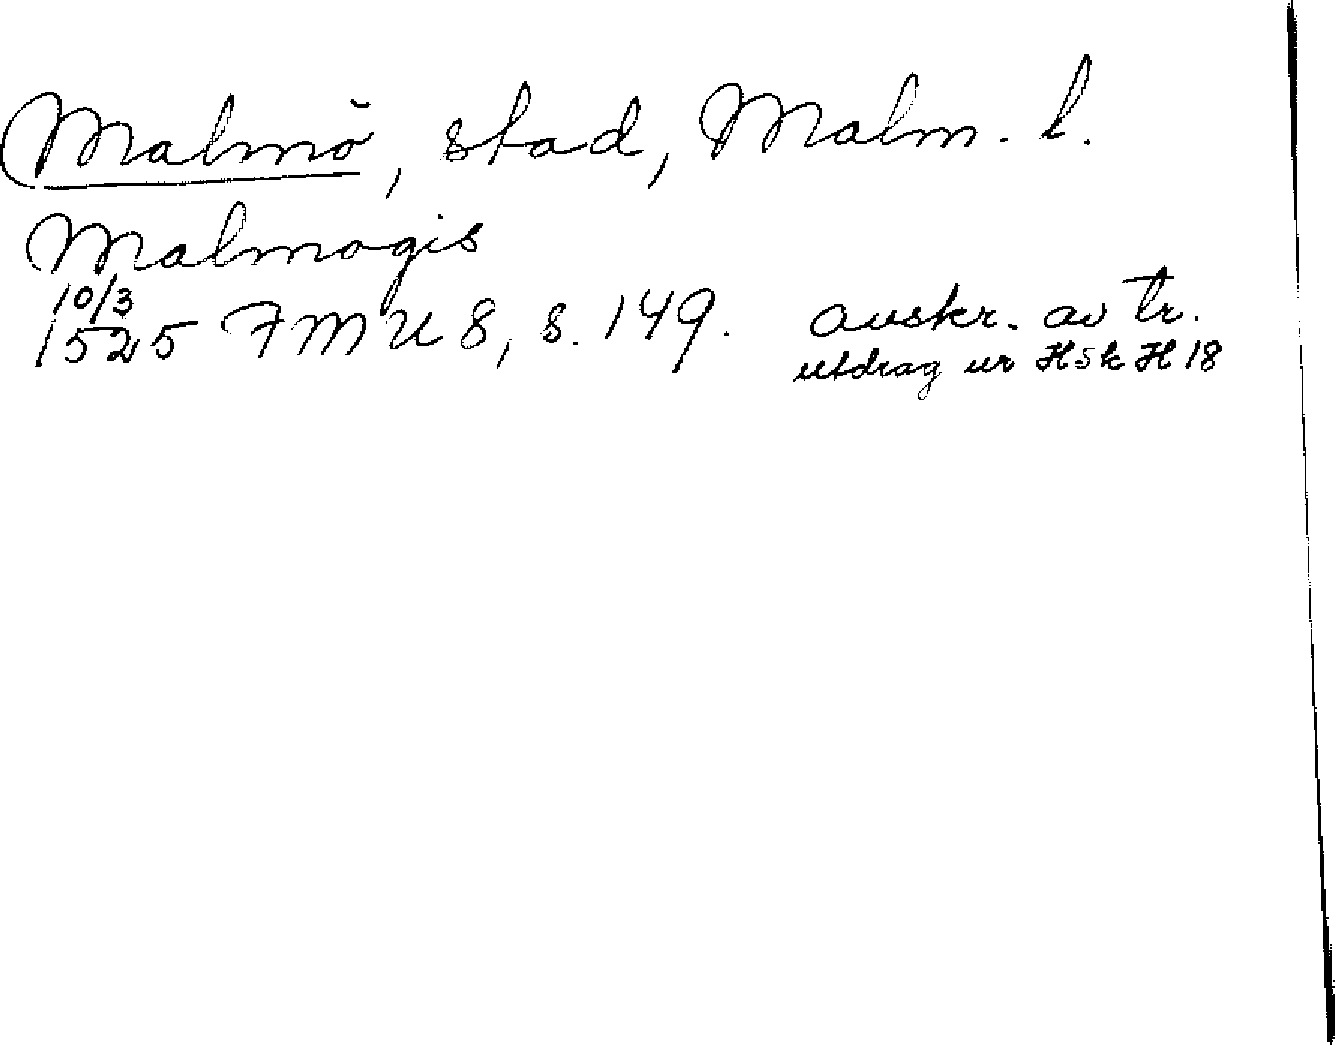 Malmö, stad, Malm. l.
Malmogis
10/3
1525 FMU 8, s. 149. avskr. av tr.
utdrag ur HSk H 18